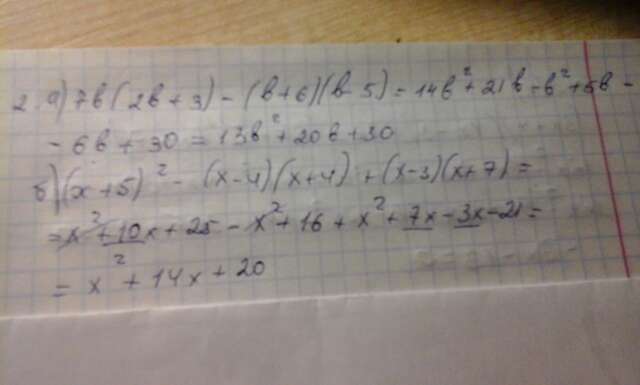 2. а) 7b(2b+3) - (b+6)(b-5) = 14b²+21b-b²+5b -
- 6b+30 = 13b²+20b+30
б) (x+5)² - (x-4)(x+4) + (x-3)(x+7) =
= x²+10x+25 - x²+16 + x²+7x-3x-21 =
= x²+14x+20